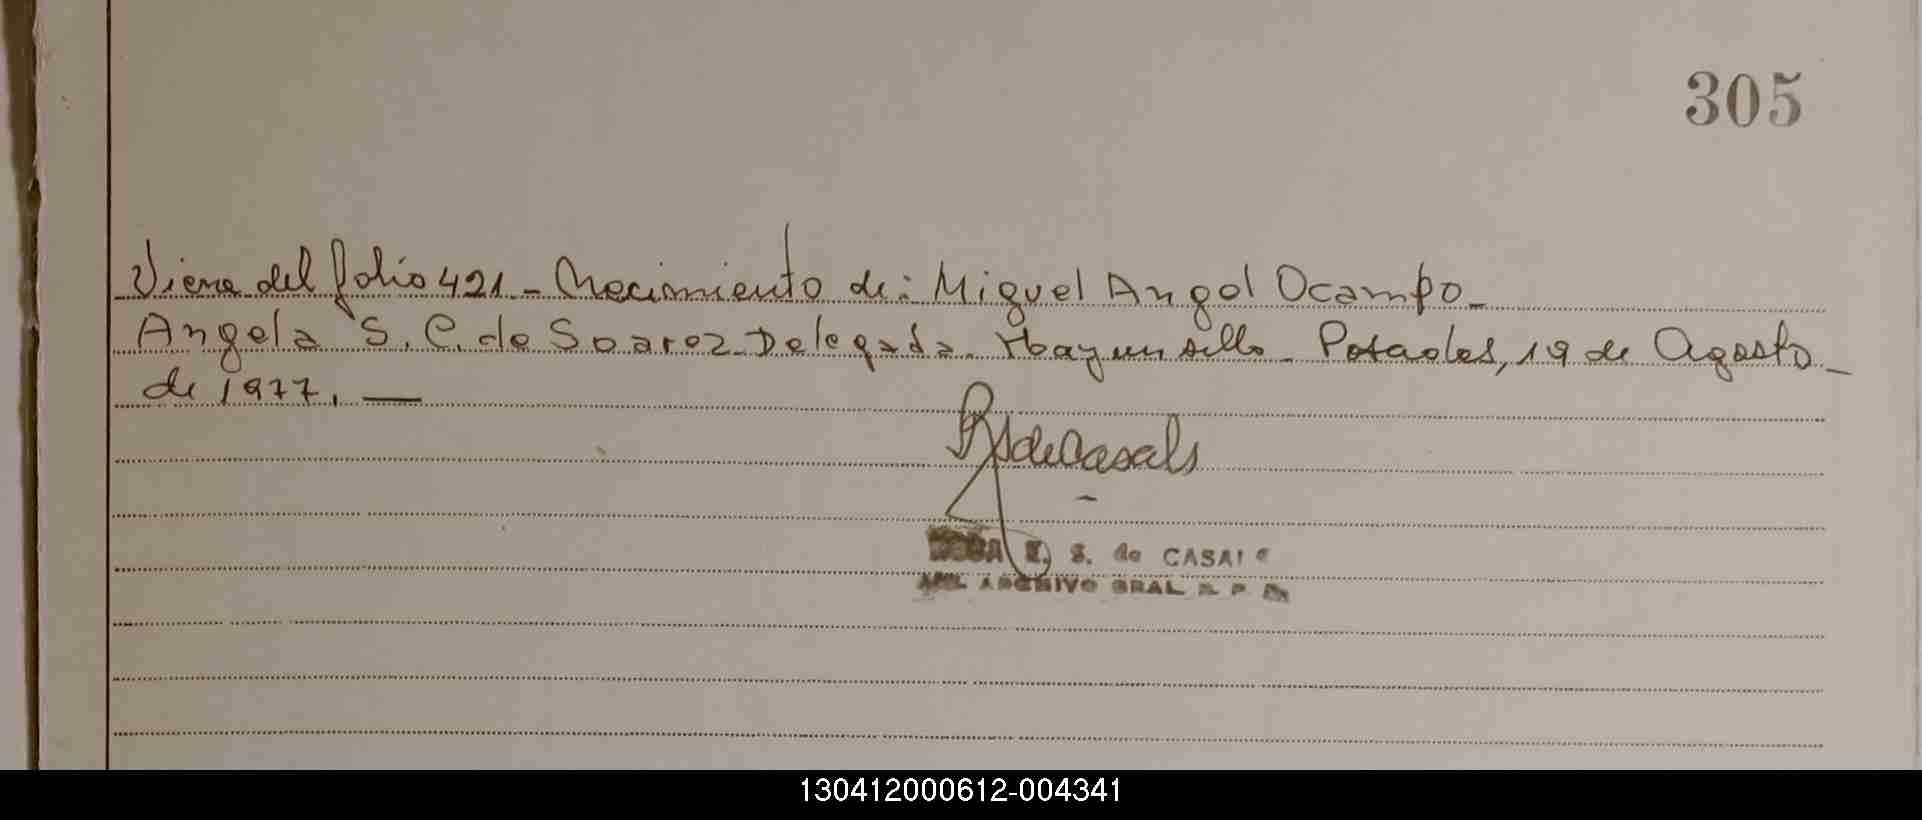 305
Viene del folio 421 - Nacimiento de: Miguel Angel Ocampo -
Angela S. C. de Soarez - Delegada. Hay un sello - Posadas, 19 de Agosto -
de 1977. —
RSdeCasals
ROSA E. S. de CASALS
ARCHIVO GRAL R. P.
130412000612-004341